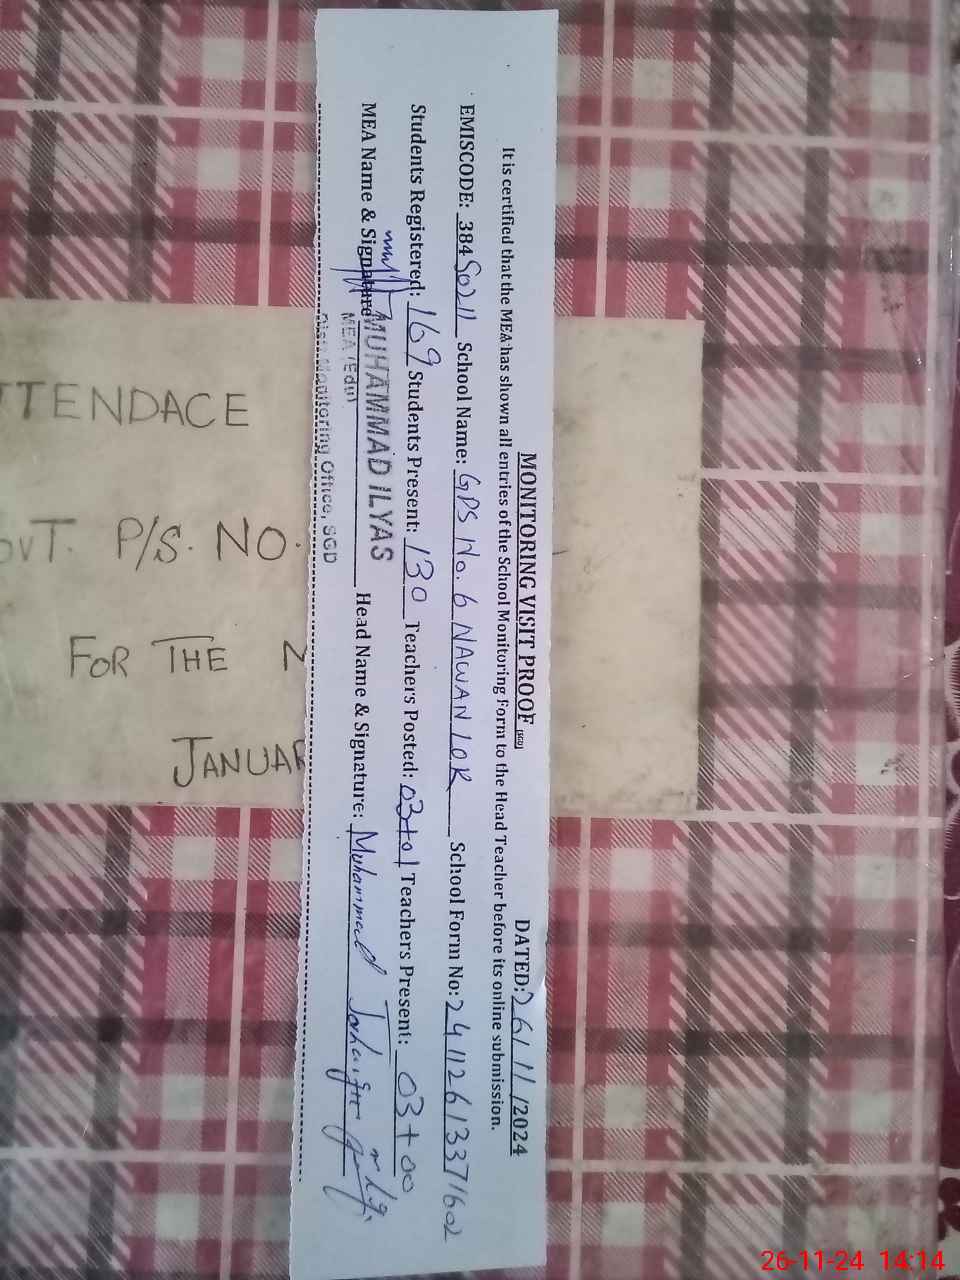 MONITORING VISIT PROOF (SGD) DATED: 26/11/2024
It is certified that the MEA has shown all entries of the School Monitoring Form to the Head Teacher before its online submission.
EMISCODE: 38450211 School Name: GPS No. 6 NAWAN LOK School Form No: 24112613371602
Students Registered: 169 Students Present: 130 Teachers Posted: 03+01 Teachers Present: 03+00
MEA Name & Signature MUHAMMAD ILYAS Head Name & Signature: Muhammad
MEA (Edu)
Distt Monitoring Office, SGD
TTENDACE
OVT. P/S. NO.
FOR THE
JANUAR
26-11-24 14:14